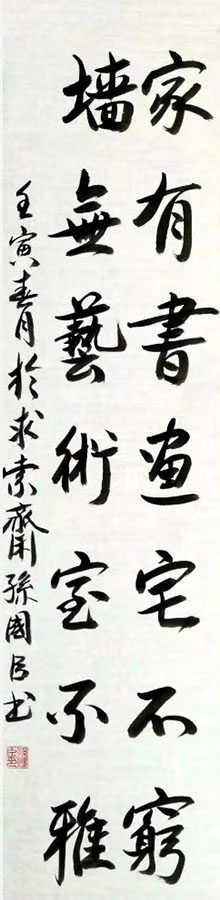 家有書画宅不窮
墙無藝術室不雅
壬寅春月於求索齋孫國书